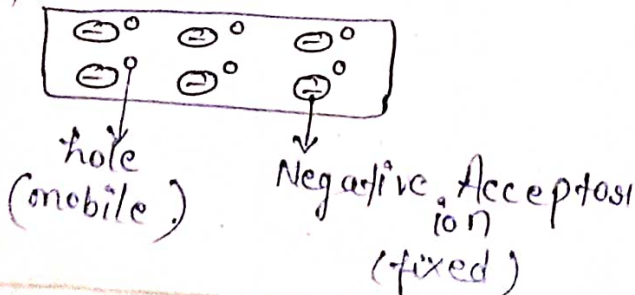 hole
(mobile.)
Negative Acceptor
ion
(fixed)